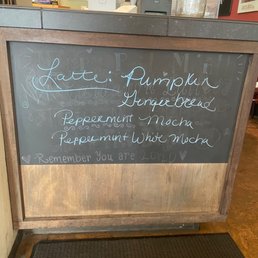 Latte: Pumpkin
Gingerbread
Peppermint Mocha
Peppermint White Mocha
Remember you are